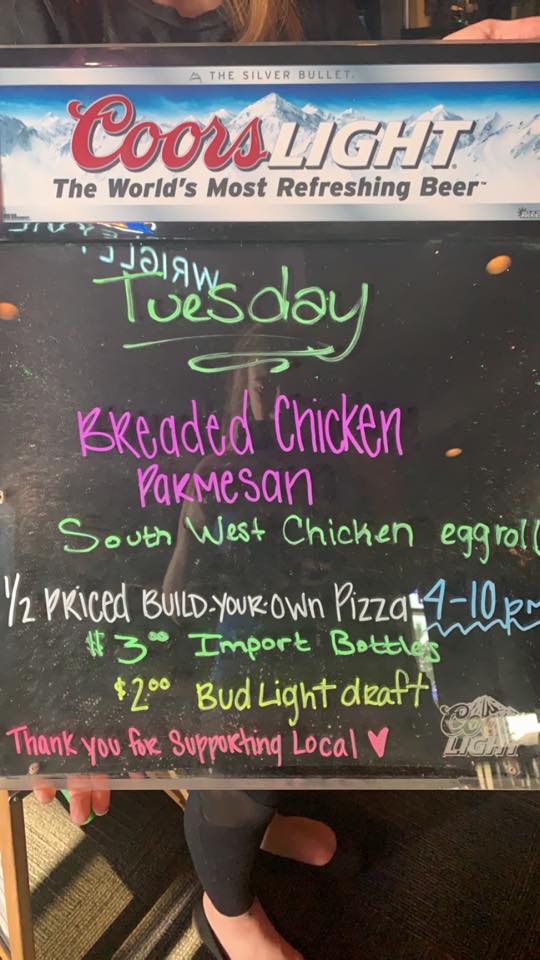 THE SILVER BULLET.
Coors LIGHT
The World's Most Refreshing Beer™
WRIGLEY
Tuesday
Breaded Chicken
Parmesan
South West Chicken eggroll
1/2 Priced BUILD-YOUR-OWN Pizza 4-10 pm
$3.00 Import Bottles
$2.00 Bud Light draft
Coors
LIGHT
Thank you for Supporting Local ♥